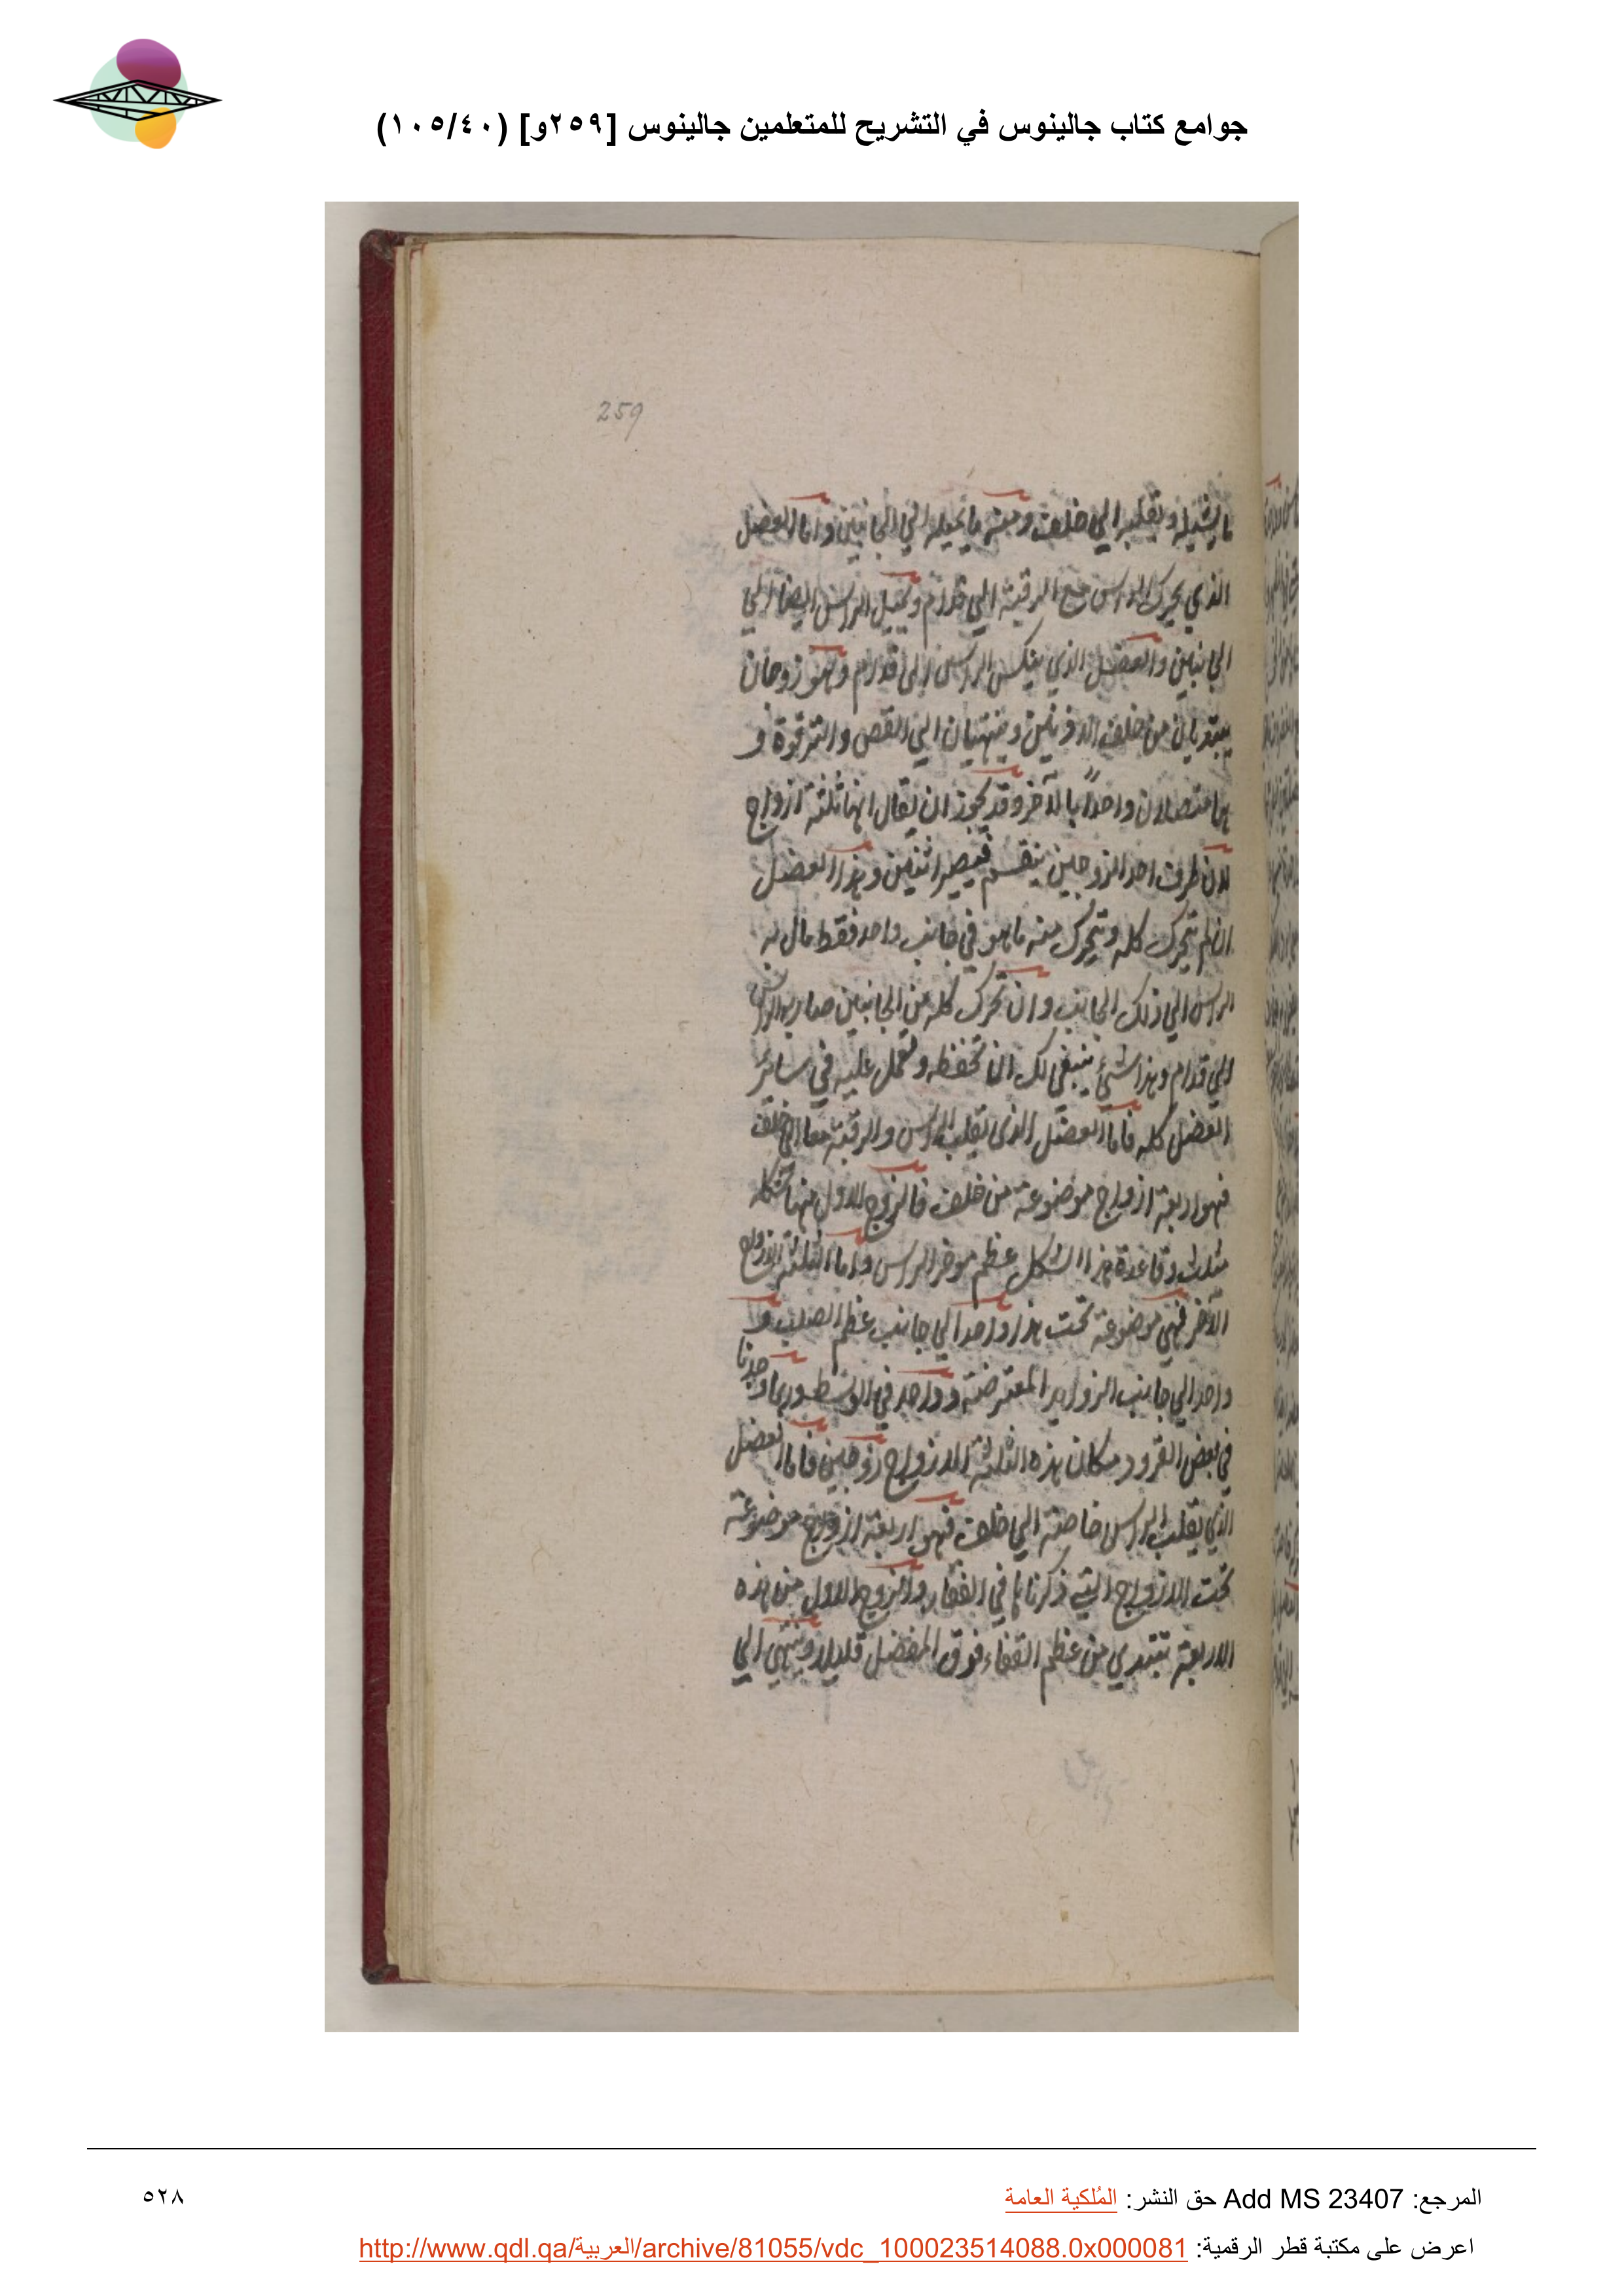 جوامع كتاب جالينوس في التشريح للمتعلمين جالينوس [٢٥٩و] (١٠٥/٤٠)
259
ما يشيله ويقلبه الي خلف ومنه ما يميله الي الجانبين واما العضل
الذي يحرك الراس مع الرقبة الي قدام ويميل الراس ايضا الي
الجانبين والعضل الذي ينكس الراس الى قدام وهو زوجان
يبتديان من خلف الاذنين وينتهيان الي القص والترقوة و
هما متصلان واحدًا بالآخر وقد يجوز ان يقال انها ثلثة ازواج
لان طرف احد الزوجين ينقسم فيصير اثنين وهذا العضل
ان لم يتحرك كله وتحرك منه ما هو في جانب واحد فقط مال به
الراس الي ذلك الجانب وان تحرك كله من الجانبين صار به الراس
الي قدام وهذا شئ ينبغي لك ان تحفظه وتعمل عليه في سائر
العضل كله فاما العضل الذى يقلب الراس والرقبة معا الى خلف
فهو اربعة ازواج موضوعة من خلف فالزوج الاول منها شكله
مثلث وقاعدة هذا الشكل عظم موخر الراس واما الثلثة الازواج
الآخر فهي موضوعة تحت هذا واحد الي جانب عظم الصلب و
واحد الي جانب الزوايد المعترضة وواحد في الوسط وربما وجدنا
في بعض القرود مكان هذه الثلثة الازواج زوجين فاما العضل
الذي يقلب الراس خاصة الي خلف فهو اربعة ازواج موضوعة
تحت الازواج التي ذكرناها في الفقار والزوج الاول من هذه
الاربعة يبتدي من عظم القفاء فوق المفصل قليلا وينتهي الي
المرجع: Add MS 23407 حق النشر: المُلكية العامة
٥٢٨
اعرض على مكتبة قطر الرقمية: http://www.qdl.qa/العربية/archive/81055/vdc_100023514088.0x000081